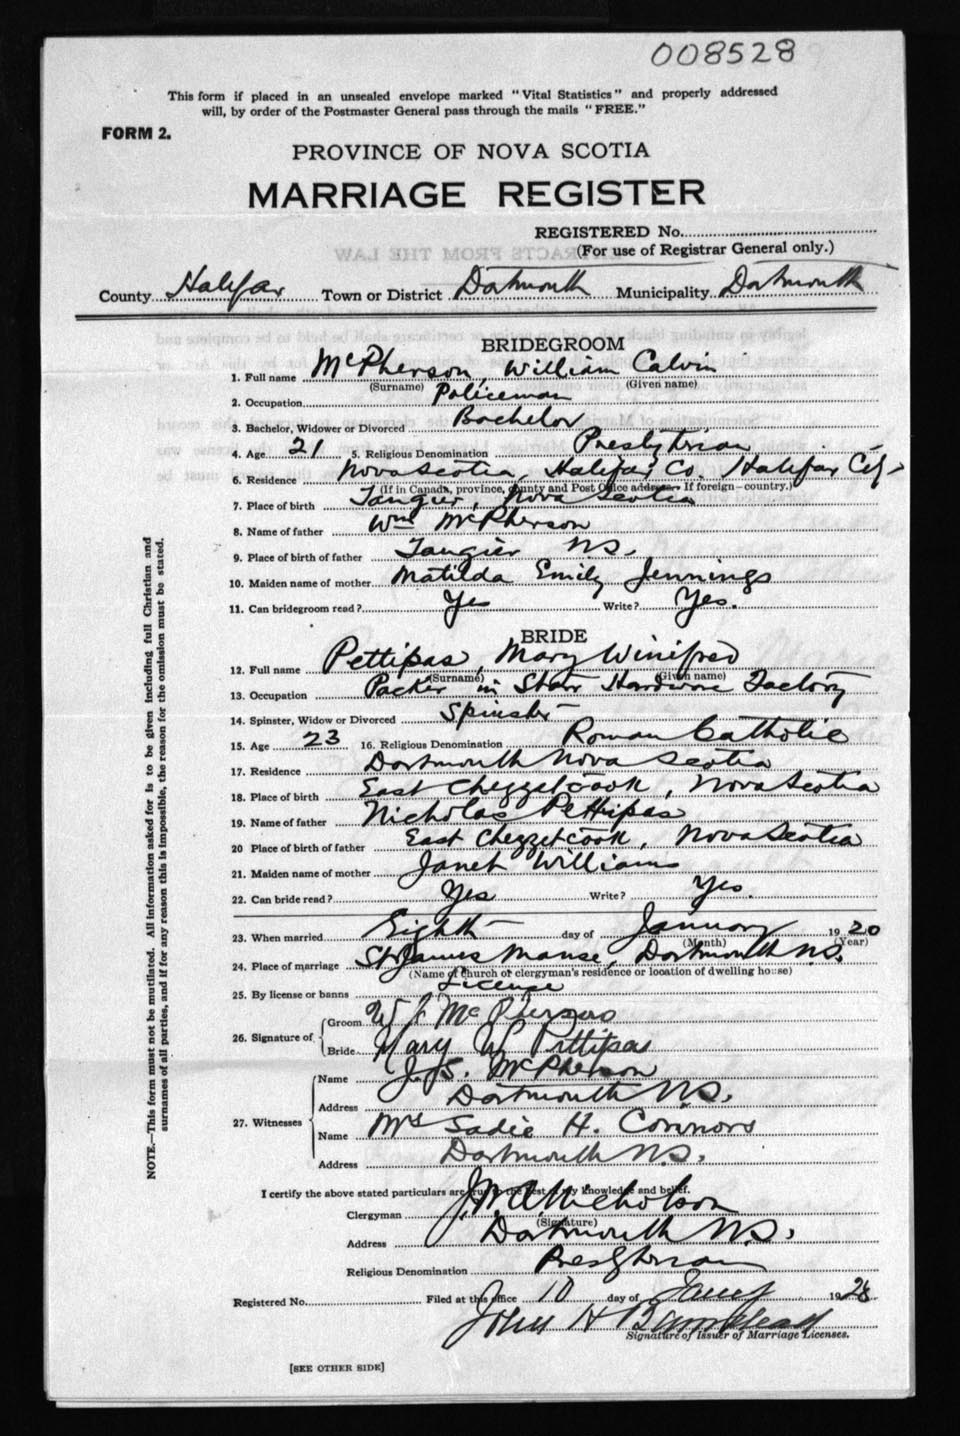 008528
This form if placed in an unsealed envelope marked "Vital Statistics" and properly addressed
will, by order of the Postmaster General pass through the mails "FREE."
FORM 2.
PROVINCE OF NOVA SCOTIA
MARRIAGE REGISTER
REGISTERED No.
(For use of Registrar General only.)
County Halifax Town or District Dartmouth Municipality Dartmouth
BRIDEGROOM
1. Full name McPherson, William Calvin
(Surname) (Given name)
2. Occupation Policeman
3. Bachelor, Widower or Divorced Bachelor
4. Age 21 5. Religious Denomination Presbyterian
6. Residence Nova Scotia, Halifax Co. Halifax City
(If in Canada, province, county and Post Office address. If foreign—country.)
7. Place of birth Tangier, Nova Scotia
8. Name of father Wm McPherson
9. Place of birth of father Tangier N.S.
10. Maiden name of mother Matilda Emily Jennings
11. Can bridegroom read? Yes Write? Yes.
BRIDE
12. Full name Pettipas, Mary Winifred
(Surname) (Given name)
13. Occupation Packer in Starr Hardware Factory
14. Spinster, Widow or Divorced Spinster
15. Age 23 16. Religious Denomination Roman Catholic
17. Residence Dartmouth Nova Scotia
18. Place of birth East Chezzetcook, Nova Scotia
19. Name of father Nicholas Pettipas
20 Place of birth of father East Chezzetcook, Nova Scotia
21. Maiden name of mother Janet Williams
22. Can bride read? Yes Write? Yes.
23. When married Eighth day of January 1920
(Month) (Year)
24. Place of marriage St James Manse, Dartmouth N.S.
(Name of Church or clergyman's residence or location of dwelling house)
25. By license or banns License
26. Signature of Groom W C McPherson
Bride Mary W Pettipas
27. Witnesses
Name J.S. McPherson
Address Dartmouth N.S.
Name Mrs Sadie H. Connors
Address Dartmouth N.S.
I certify the above stated particulars are true to the best of my knowledge and belief.
Clergyman Nicholson
(Signature)
Address Dartmouth N.S.
Religious Denomination Presbyterian
Registered No. Filed at this office 10 day of Jany 1920
John H
Signature of Issuer of Marriage Licenses.
[SEE OTHER SIDE]
NOTE.—This form must not be mutilated. All information asked for is to be given including full Christian and
surnames of all parties, and if for any reason this is impossible, the reason for the omission must be stated.